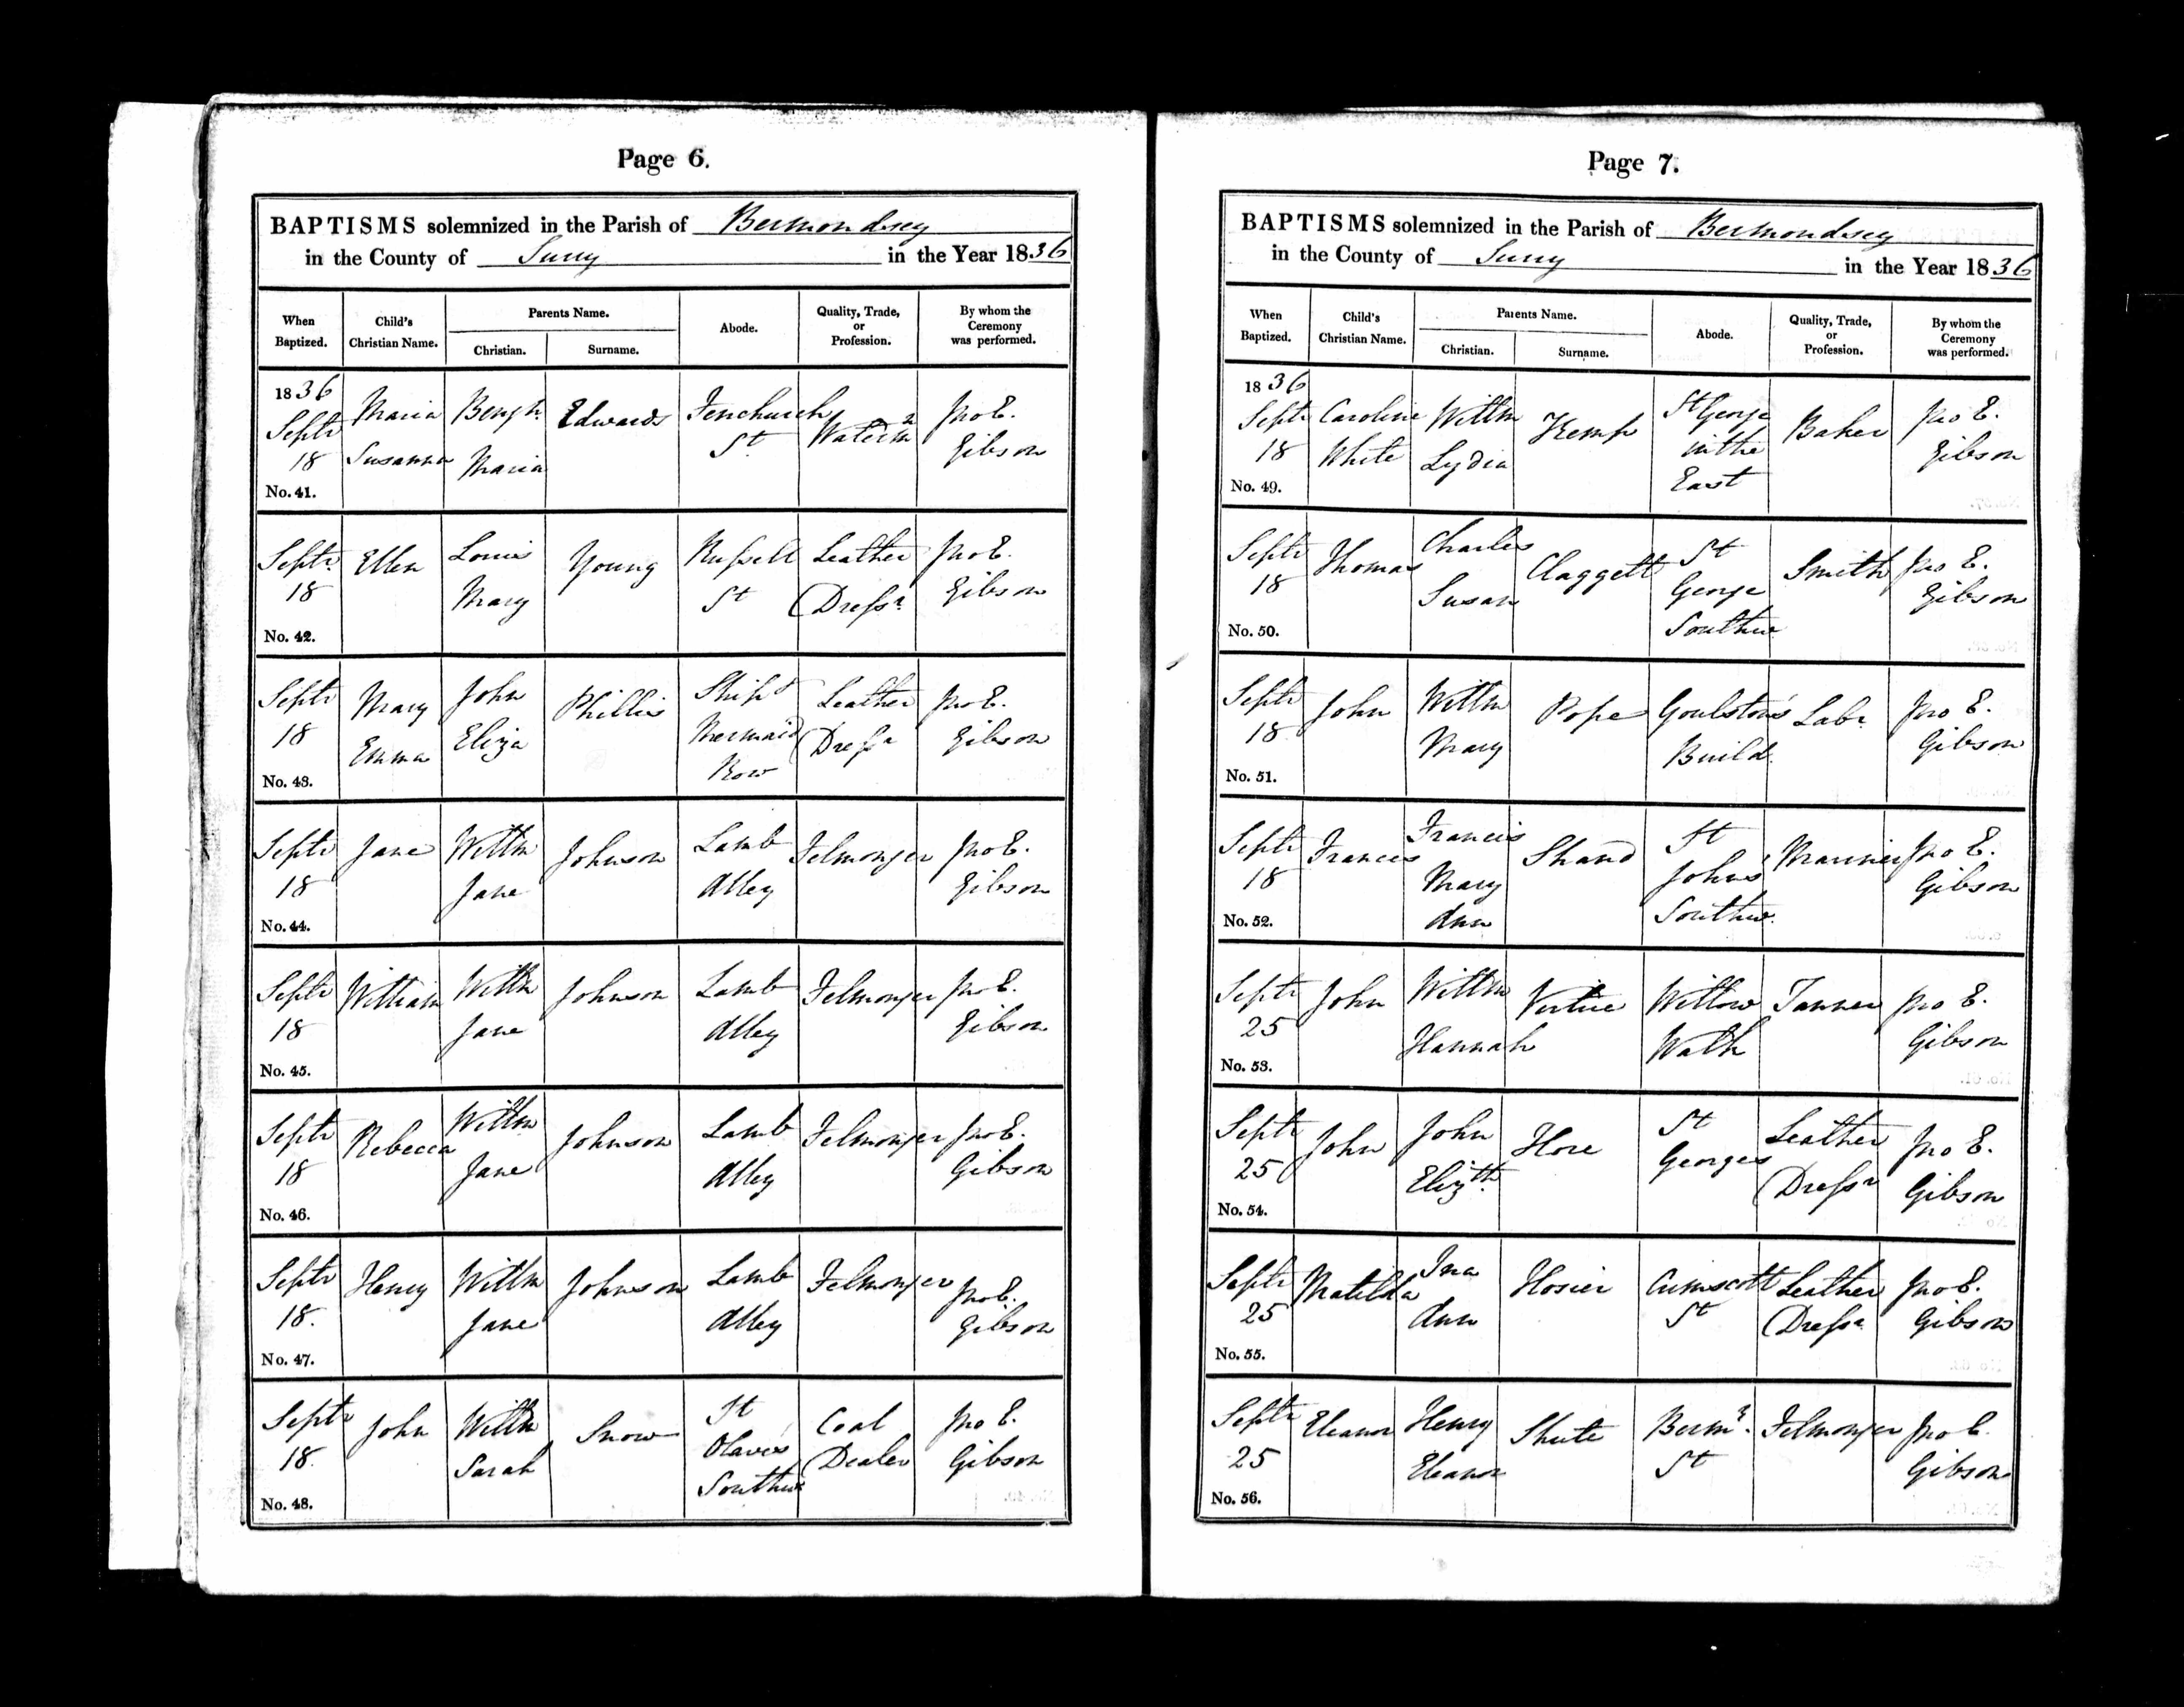 Page 6.
BAPTISMS solemnized in the Parish of Bermondsey
in the County of Surry in the Year 1836
When Baptized. Child's Christian Name. Parents Name. Christian. Surname. Abode. Quality, Trade, or Profession. By whom the Ceremony was performed.
1836 Septr 18 No. 41. Maria Susanna Benjn. Maria Edwards Fenchurch St Waterman Jno E. Gibson
Septr. 18 No. 42. Ellen Louis Mary Young Russell St Leather Dressr Jno E. Gibson
Septr 18 No. 43. Mary Emma John Eliza Phillis Ship & Mermaid Row Leather Dressr Jno E. Gibson
Septr 18 No. 44. Jane Willm Jane Johnson Lamb Alley Felmonger Jno E. Gibson
Septr 18 No. 45. William Willm Jane Johnson Lamb Alley Felmonger Jno E. Gibson
Septr 18 No. 46. Rebecca Willm Jane Johnson Lamb Alley Felmonger Jno E. Gibson
Septr 18. No. 47. Henry Willm Jane Johnson Lamb Alley Felmonger Jno E. Gibson
Septr 18. No. 48. John Willm Sarah Snow St Olave's Southw Coal Dealer Jno E. Gibson
Page 7.
BAPTISMS solemnized in the Parish of Bermondsey
in the County of Surry in the Year 1836
When Baptized. Child's Christian Name. Parents Name. Christian. Surname. Abode. Quality, Trade, or Profession. By whom the Ceremony was performed.
1836 Septr 18 No. 49. Caroline White Willm Lydia Kemp St George in the East Baker Jno E. Gibson
Septr 18 No. 50. Thomas Charles Susan Claggett St George Southw Smith Jno E. Gibson
Septr 18 No. 51. John Willm Mary Pope Goulston's Build. Labr Jno E. Gibson
Septr 18 No. 52. Francis Francis Mary Ann Shand St John's Southw. Mariner Jno E. Gibson
Septr 25 No. 53. John Willm Hannah Virtue Willow Walk Tanner Jno E. Gibson
Septr 25 No. 54. John John Elizth. Hore St Georges Leather Dressr Jno E. Gibson
Septr 25 No. 55. Matilda Ira Ann Hosier Crimscott St Leather Dressr Jno E. Gibson
Septr 25 No. 56. Eleanor Henry Eleanor Shute Berm. St Felmonger Jno E. Gibson